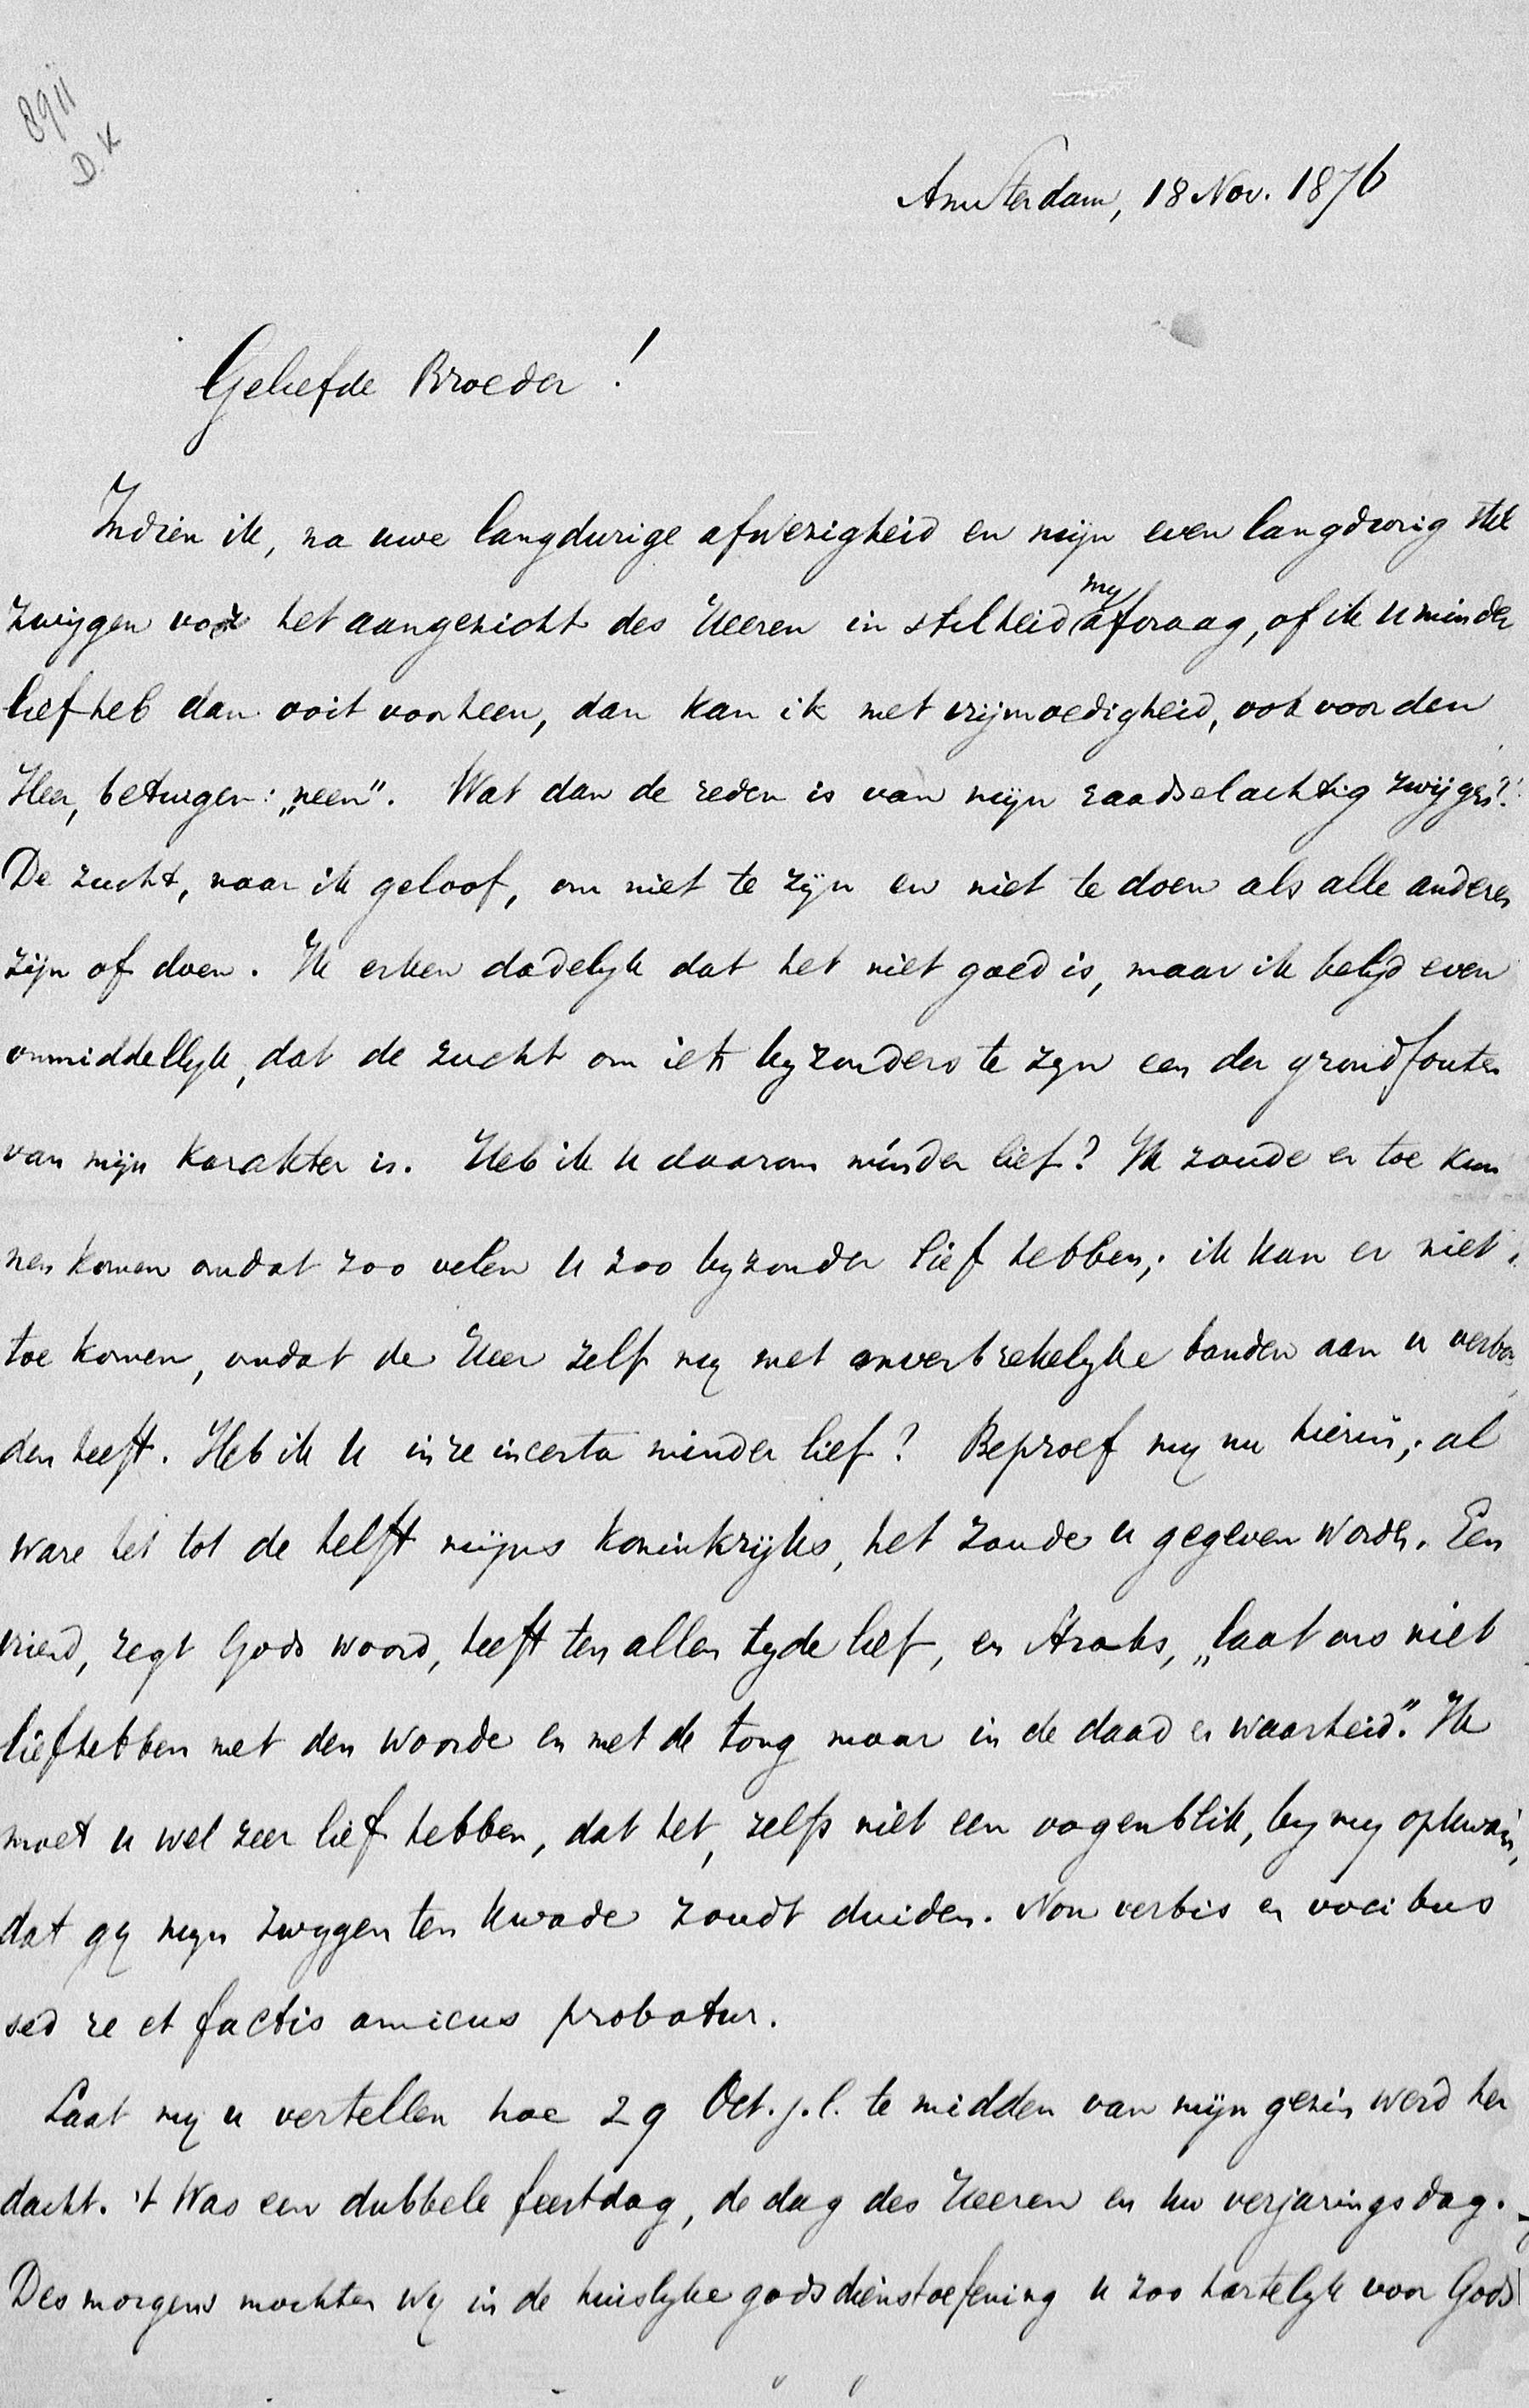 8911
D. K
Amsterdam, 18 Nov. 1876
Geliefde Broeder!
Indien ik, na uwe langdurige afwezigheid en mijn even langdurig stil
zwijgen voor het aangezicht des Heeren in stilheid my afvraag, of ik u minder
lief heb dan ooit voorheen, dan kan ik met vrijmoedigheid, ook voor den
Heer, betuigen: „neen”. Wat dan de reden is van mijn raadselachtig zwijgen?
De zucht, naar ik geloof, om niet te zijn en niet te doen als alle anderen
zijn of doen. Ik erken dadelyk dat het niet goed is, maar ik belyd even
onmiddellyk, dat de zucht om iets byzonders te zyn een der grondfouten
van mijn karakter is. Heb ik u daarom minder lief? Ik zoude er toe kun
nen komen omdat zoo velen u zoo byzonder lief hebben; ik kan er niet
toe komen, omdat de Heer zelf my met onverbrekelyke banden aan u verbon
den heeft. Heb ik u in re incerta minder lief? Beproef my nu hierin; al
ware het tot de helft mijns koninkrijks, het zoude u gegeven worden. Een
vriend, zegt Gods woord, heeft ten allen tyde lief, en straks, „laat ons niet
liefhebben met den woorde en met de tong maar in de daad en waarheid.” Ik
moet u wel zeer lief hebben, dat het, zelfs niet een oogenblik, by my opkwam,
dat gy myn zwygen ten kwade zoudt duiden. Non verbis en vocibus
sed re et factis amicus probatur.
Laat my u vertellen hoe 29 Oct. j.l. te midden van mijn gezin werd her
dacht. 't Was een dubbele feestdag, de dag des Heeren en uw verjaringsdag.
Des morgens mochten wy in de huislyke godsdienstoefening u zoo hartelyk voor Gods